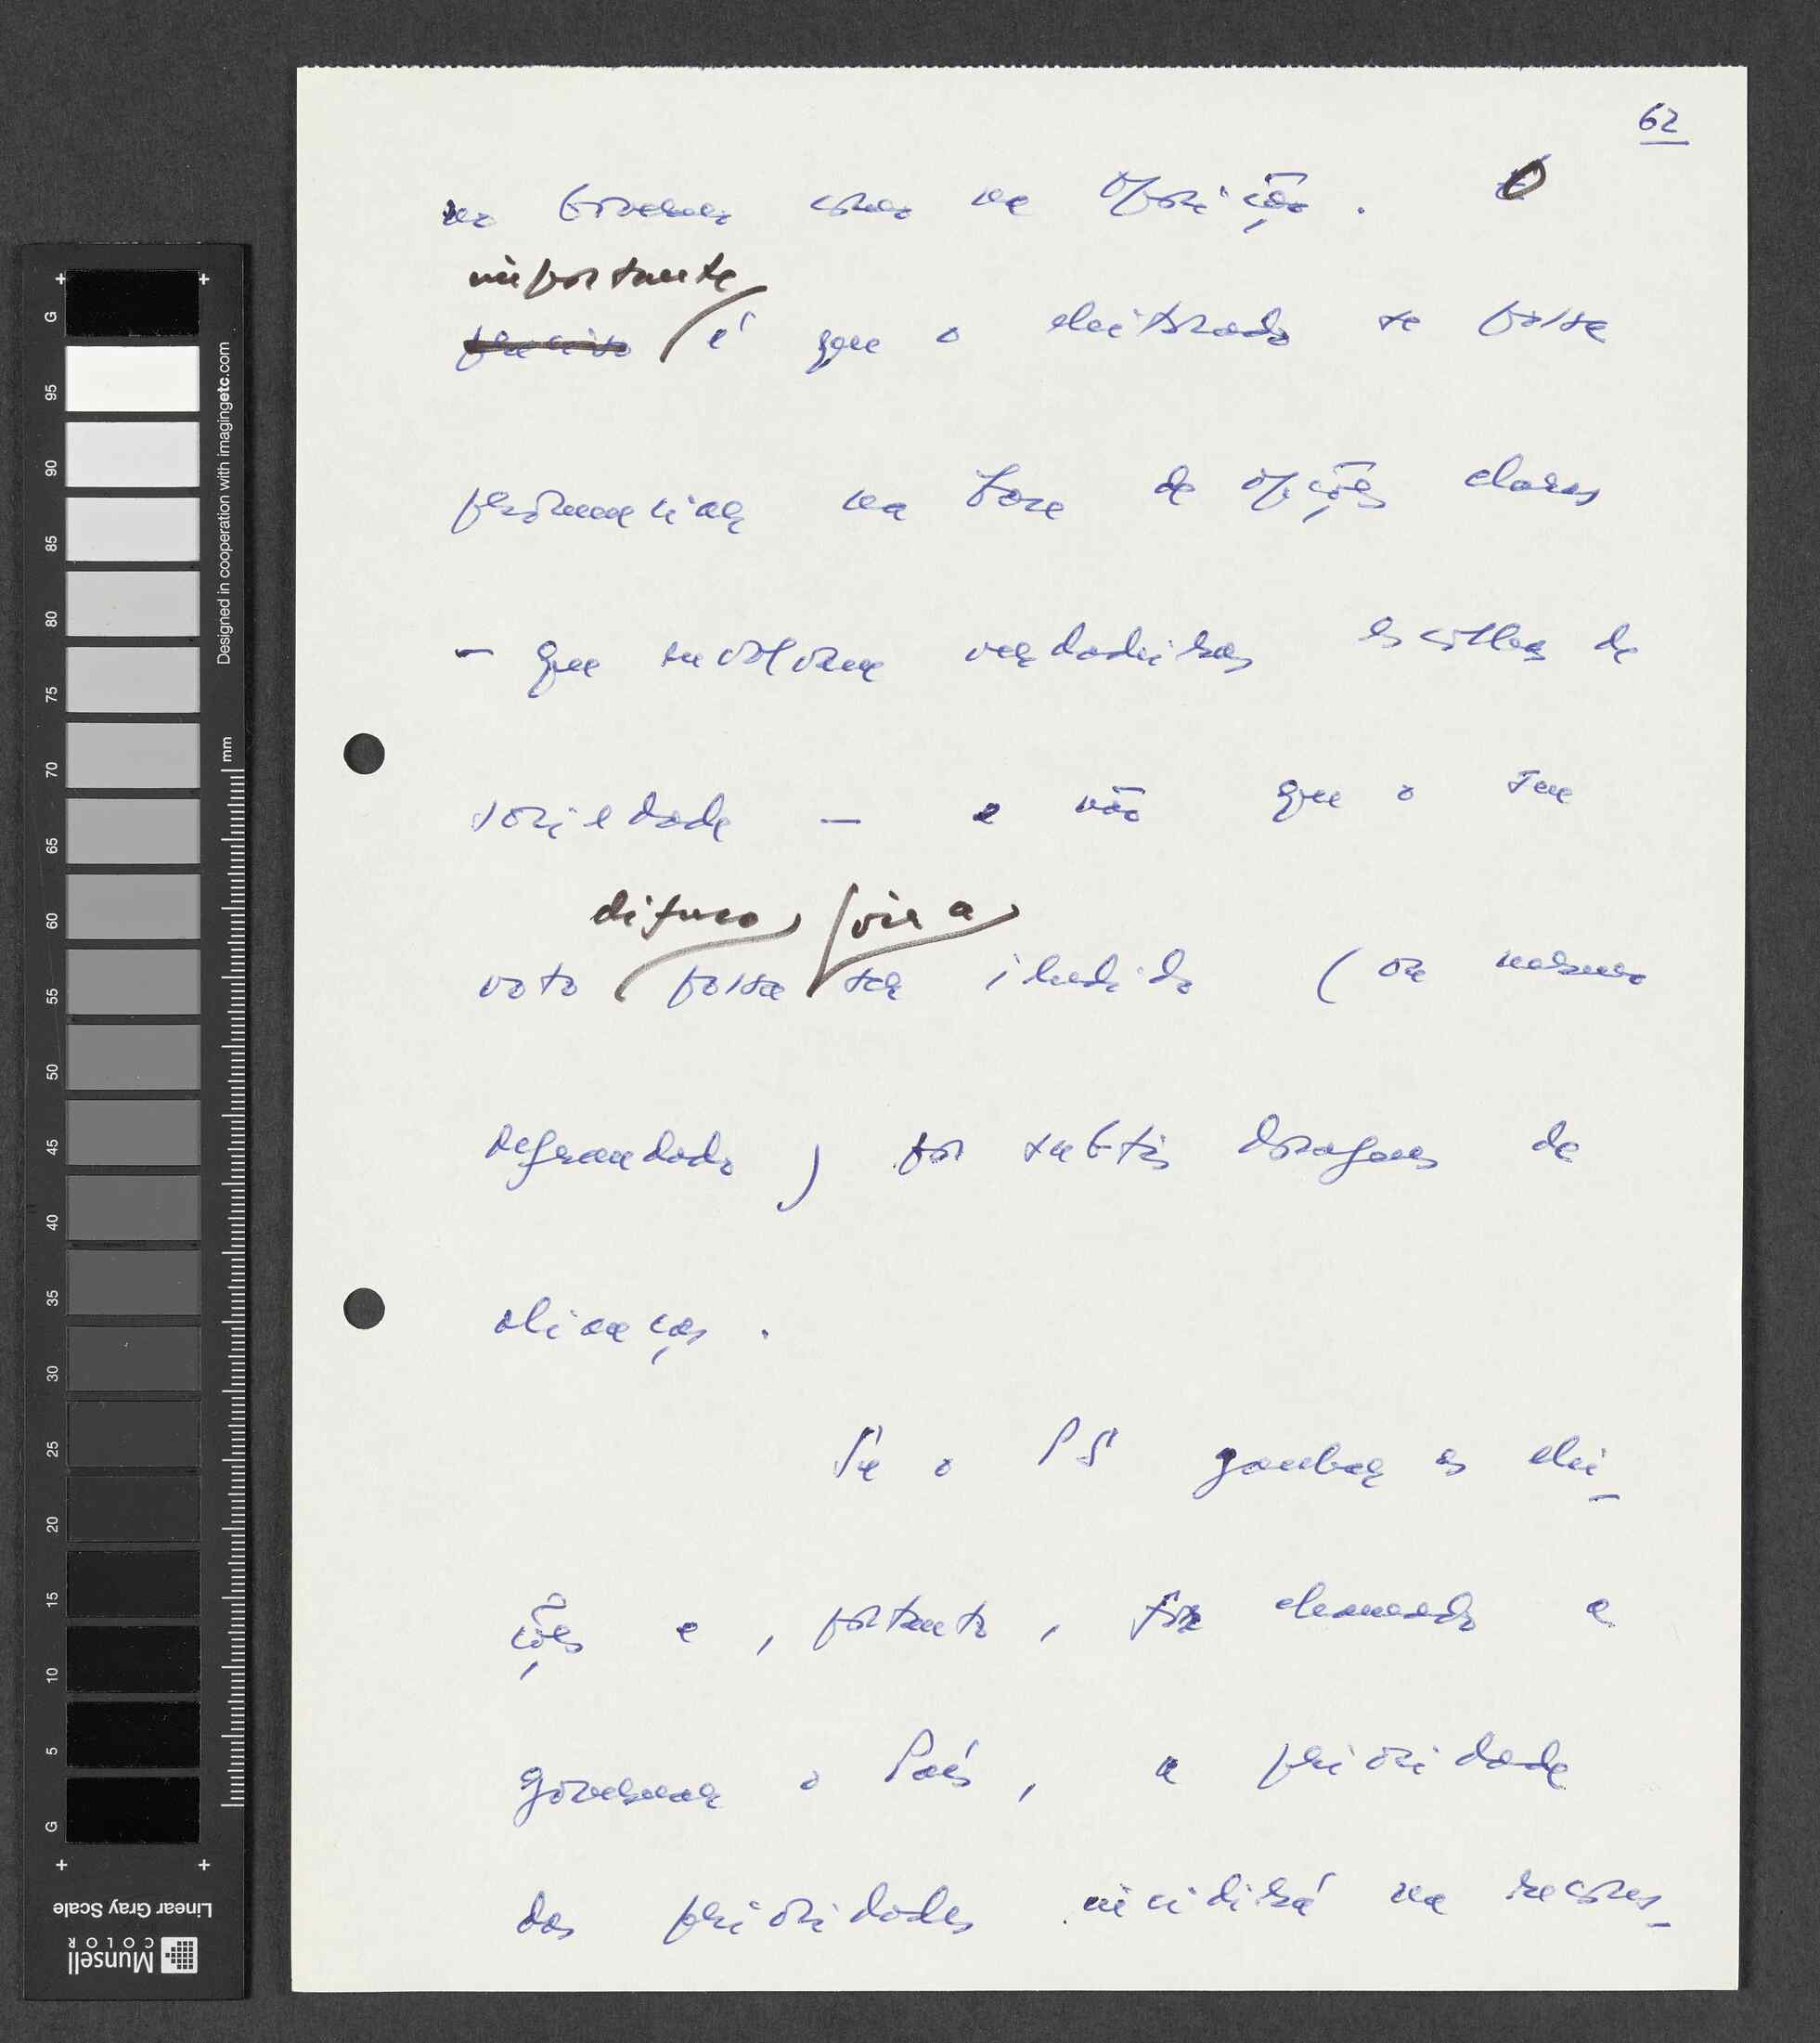 62
no Governo como na Oposição. O
importante
preciso é que o eleitorado se possa
pronunciar na base de opções claras
- que envolvem verdadeiras escolhas de
sociedade - e não que o seu
difuso vir a
voto possa ser iludido (ou mesmo
defraudado) por subtis dosagens de
alianças.
Se o PS ganhar as elei-
ções e, portanto, for chamado a
governar o País, a prioridade
das prioridades incidirá na recons-
G 95 90 85 80 75 70 65 60 55 50 45 40 35 30 25 20 15 10 5 G
Designed in cooperation with imagingetc.com
mm
Linear Gray Scale
Munsell
COLOR